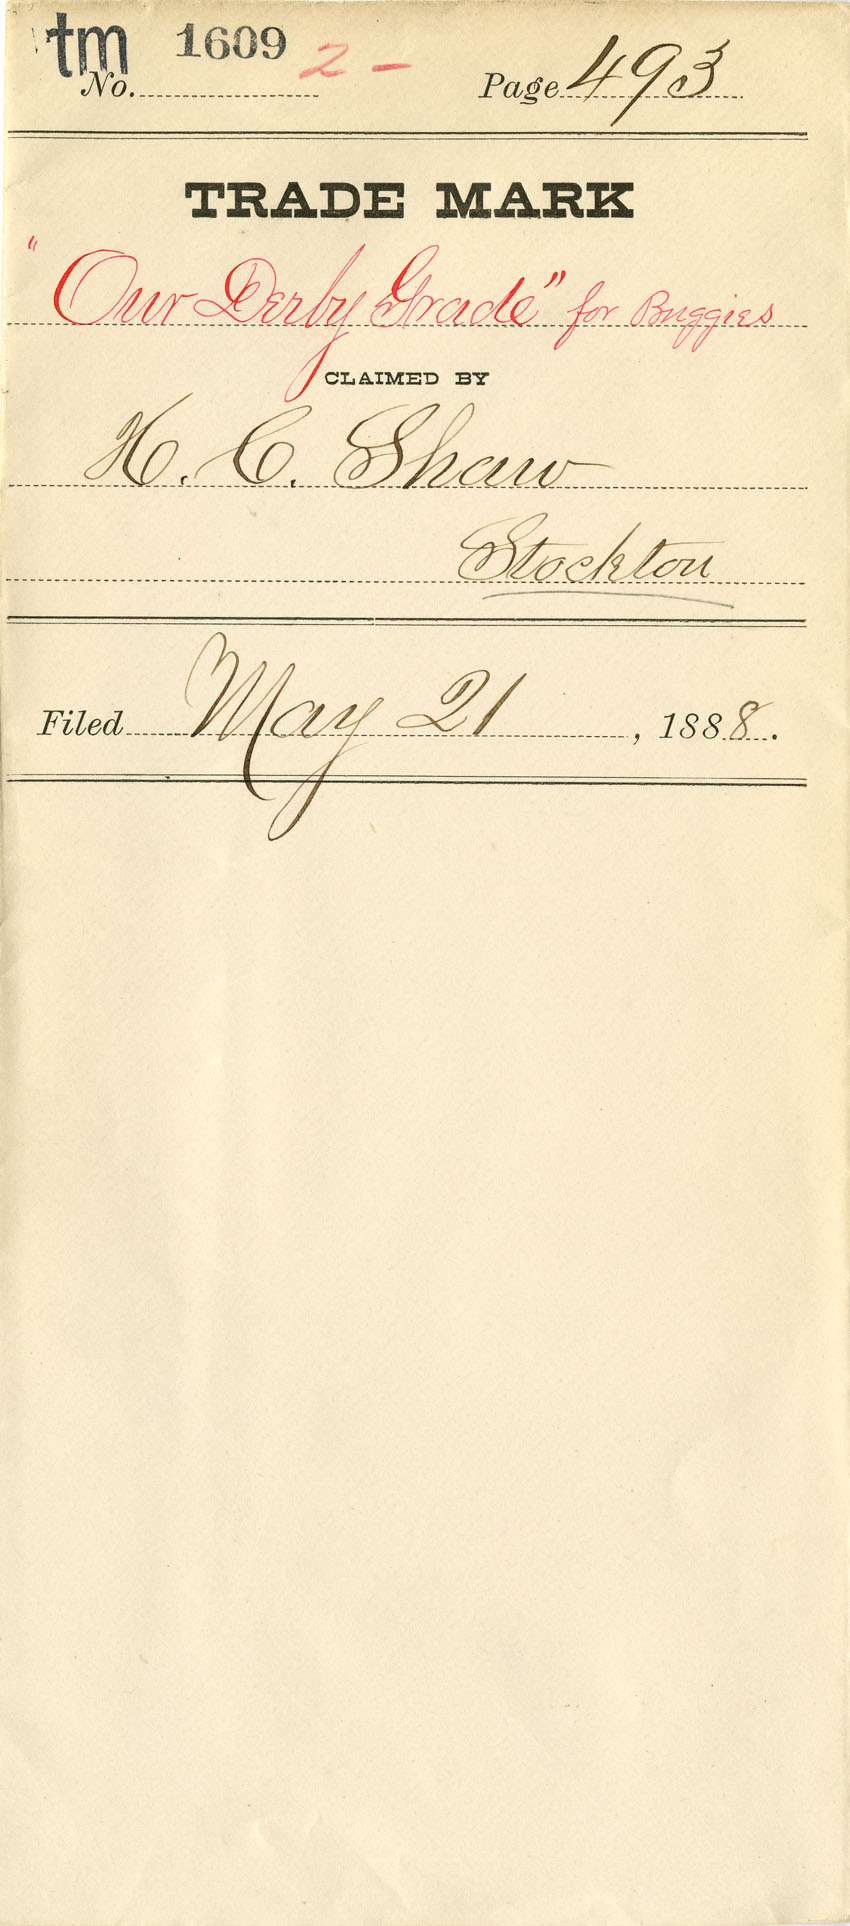 tm 1609 2 -
No. Page 493
TRADE MARK
"Our Derby Grade" for Buggies
CLAIMED BY
H. C. Shaw
Stockton
Filed May 21, 1888.